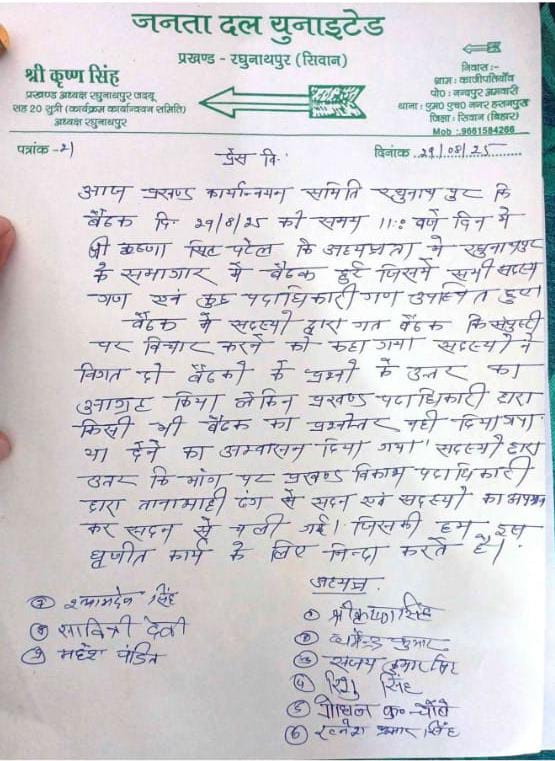 जनता दल युनाइटेड
प्रखण्ड - रघुनाथपुर (सिवान)
श्री कृष्ण सिंह
प्रखण्ड अध्यक्ष रघुनाथपुर जदयू
सह 20 सुत्री (कार्यक्रम कार्यान्वयन समिति)
अध्यक्ष रघुनाथपुर
निवास :-
ग्राम : काशीपतियाँव
पो० : नन्दपुर अमवारी
थाना : एम० एच० नगर हसनपुरा
जिला : सिवान (बिहार)
Mob :.9661584266
पत्रांक -2)
प्रेस वि.
दिनांक 29/08/25
आज प्रखण्ड कार्यान्वयन समिति रघुनाथ पुर कि
बैठक दि 29/8/25 को समय 11:० बजे दिन में
श्री कृष्णा सिंह पटेल कि अध्यक्षता में रघुनाथपुर
के सभागार में बैठक हुई जिसमें सभी सदस्य
गण एवं कुछ पदाधिकारी गण उपस्थित हुए
बैठक में सदस्यों द्वारा गत बैठक कि संपुष्टी
पर विचार करने को कहा गया सदस्यों ने
विगत दो बैठकों के प्रश्नों के उत्तर का
आग्रह किया लेकिन प्रखण्ड पदाधिकारी द्वारा
किसी भी बैठक का प्रश्नोत्तर नही दिया गया
था देने का अश्वासन दिया गया सदस्यों द्वारा
उत्तर कि मांग पर प्रखण्ड विकाश पदाधिकारी
द्वारा तानाशाही ढंग से सदन एवं सदस्यों का अपमान
कर सदन से चली गई। जिसकी हम इस
घृणीत कार्य के लिए निन्दा करते है।
अध्यक्ष
① श्रीकृष्णा सिंह
② धर्मेन्द्र कुमार
③ संजय कुमार सिंह
④ रिशु सिंह
⑤ कु० चौबे
⑥ कुमार सिंह
⑦ श्यामदेव सिंह
⑧ सावित्री देवी
⑨ महेश पंडित